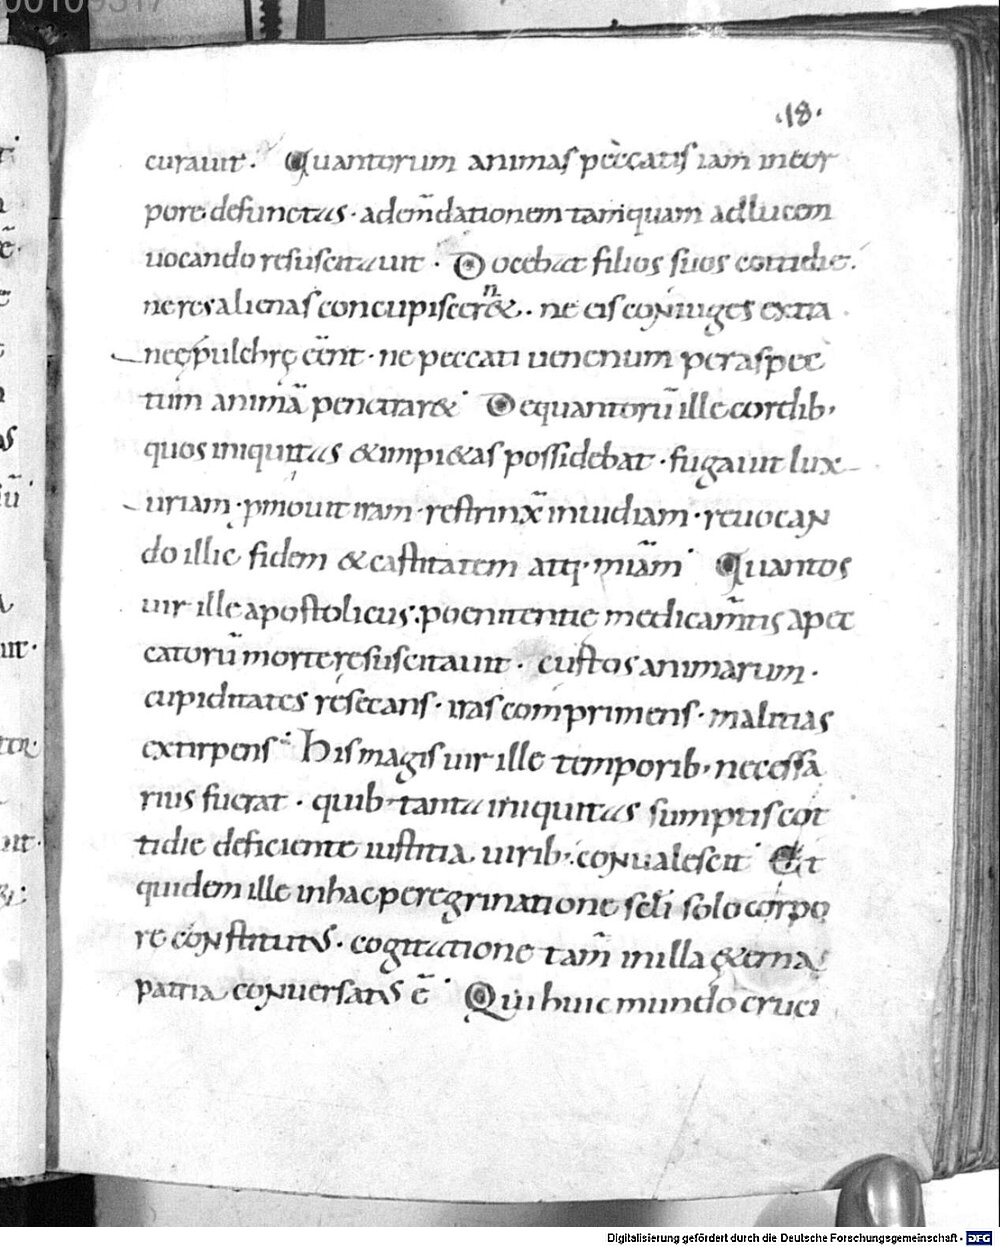 ·18·
curauit. Quantorum animas peccatis iam incor
pore defunctas· ademdationem tamquam adlucem
uocando resuscitauit· Docebat filios suos cottidie·
ne res alienas concupiscerñ&· ne eis coniuges extra
neę pulchrę cent̄· ne peccati uenenum peraspec
tum animā penetrar&· De quantorū ille cordib;
quos iniquitas & impi&as possidebat· fugauit lux
uriam· p̱mouit iram· restrinx̄ inuidiam· reuocan
do illic fidem & castitatem atq· miām· Quantos
uir ille apostolicus· poenitentie medicam̄tis apec
catorū morte resuscitauit· custos animarum·
cupiditates resecans· iras comprimens· malitias
extirpens· His magis uir ille temporib· necessa
rius fuerat· quib· tanta iniquitas sumptis cot
tidie deficiente iustitia uirib· conualescit· Et
quidem ille inhac peregrinatione sc̄li solo corpo
re constitutus· cogitatione tam̄ inilla ę&erna
patria conuersatus ē· Qui huic mundo cruci
Digitalisierung gefördert durch die Deutsche Forschungsgemeinschaft - DFG